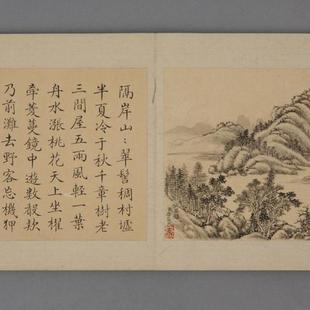 隔岸山〻翠髻稠村墟
半夏冷于秋千章樹老
三間屋五兩風輕一葉
舟水漲桃花天上坐櫂
牽菱蔓鏡中遊數聲欸
乃前灘去野客忘機狎